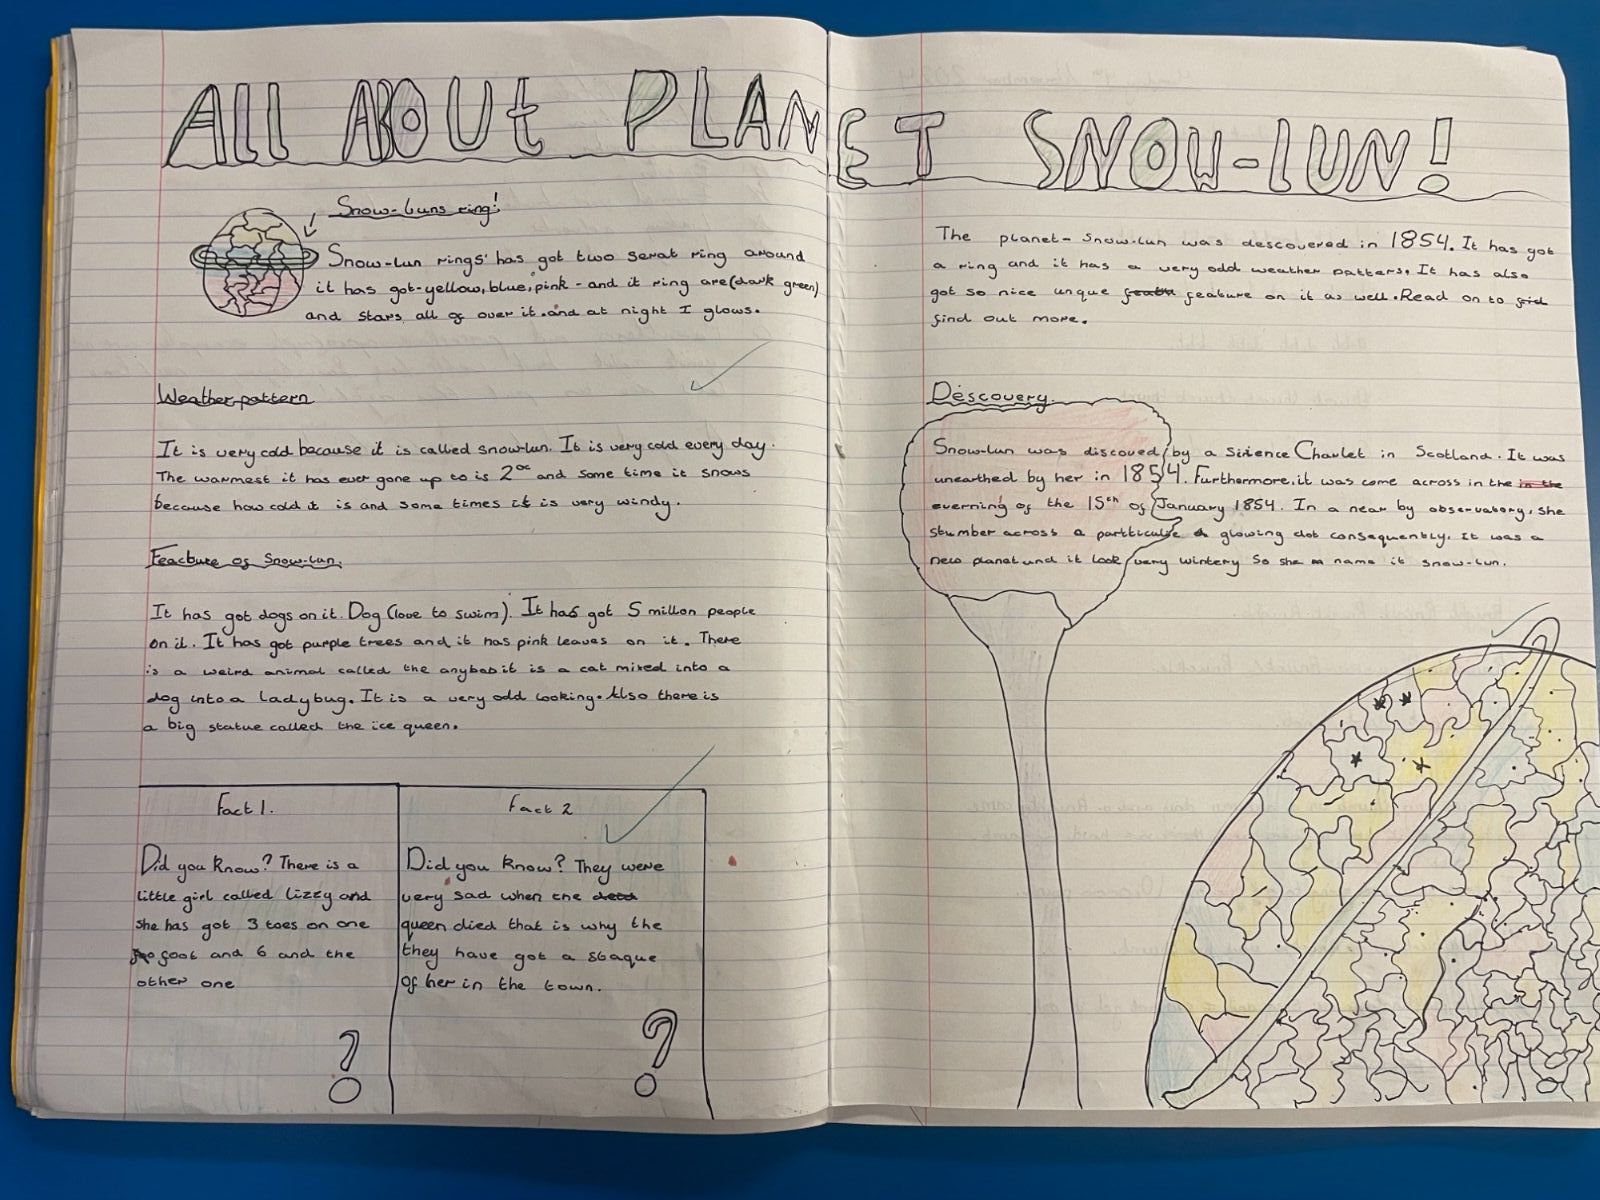 ALL ABOUt PLANET SNOW-LUN!
Snow-luns ring!
Snow-lun rings' has got two serat ring around
it has got-yellow, blue, pink - and it ring are (dark green)
and stars all of over it. and at night I glows.
Weather pattern
It is very cold because it is called snow-lun. It is very cold every day.
The warmest it has ever gone up to is 2°c and some time it snows
because how cold it is and some times it is very windy.
Feacture of Snow-lun.
It has got dogs on it. Dog (love to swim). It has got 5 millon people
on it. It has got purple trees and it has pink leaves on it. There
is a weird animal called the anybab it is a cat mixed into a
dog into a ladybug. It is a very odd looking. Also there is
a big statue called the ice queen.
Fact 1.
Did you know? There is a
little girl called lizzy and
she has got 3 toes on one
foot and 6 and the
other one
Fact 2
Did you know? They were
very sad when the dead
queen died that is why the
they have got a staque
of her in the town.
The planet- Snow-lun was descovered in 1854. It has got
a ring and it has a very odd weather patters. It has also
got so nice unque feature on it as well. Read on to
find out more.
Descovery.
Snow-lun was discoved by a Sirience Charlet in Scotland. It was
unearthed by her in 1854. Furthermore, it was come across in the in the
everning of the 15th of January 1854. In a near by observatory, she
stumber across a partticulse glowing dot consequently. It was a
new planet und it look very wintery So she name it snow-lun.